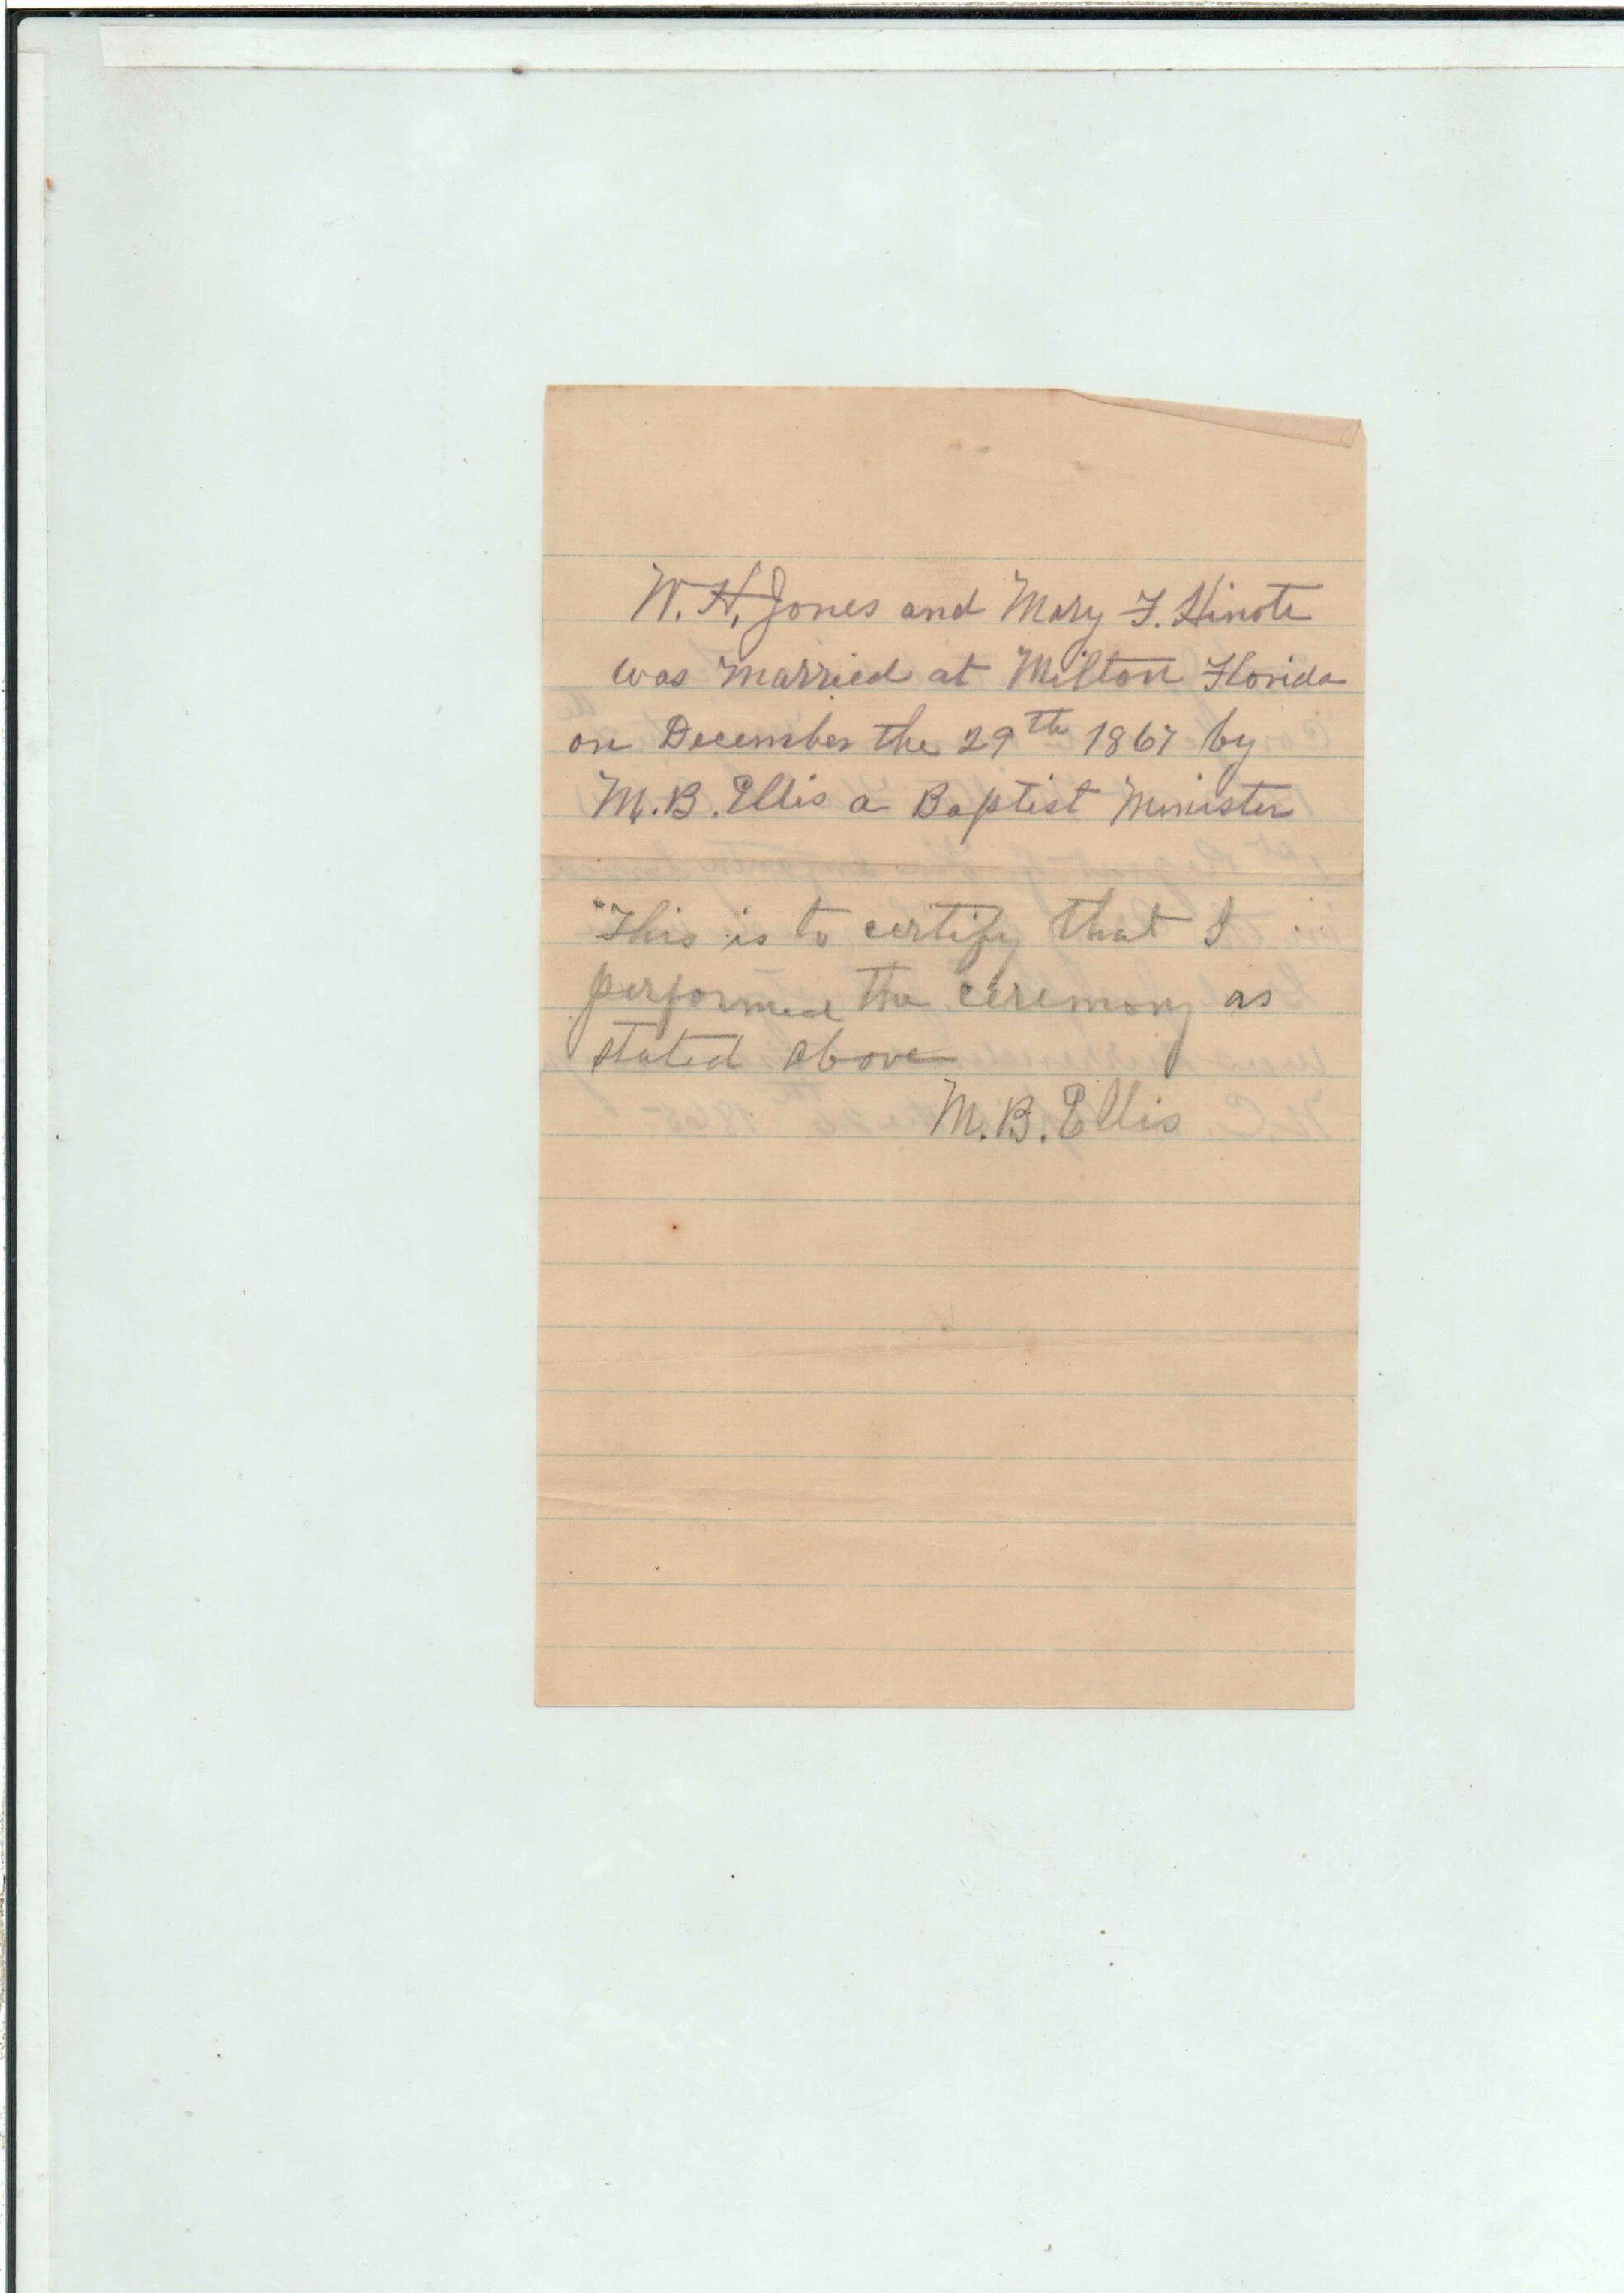 W. H. Jones and Mary F. Hinote
was married at Milton Florida
on December the 29th 1867 by
M. B. Ellis a Baptist Minister
"This is to certify that I
performed the ceremony as
stated above
M. B. Ellis